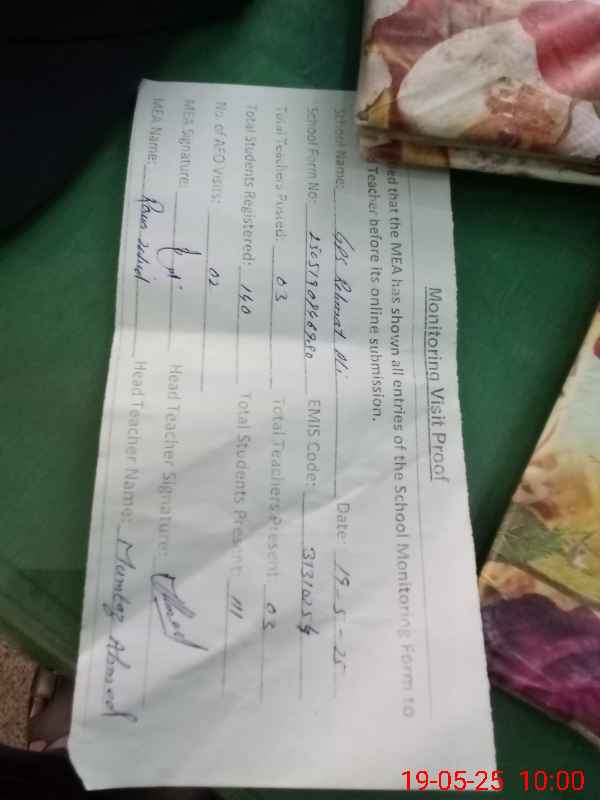 Monitoring Visit Proof
ed that the MEA has shown all entries of the School Monitoring Form to
Teacher before its online submission.
School Name: GPS Rehmat Ali Date: 19-5-25
School Form No: EMIS Code: 31310254
Total Teachers Posted: 03 Total Teachers Present: 03
Total Students Registered: 140 Total Students Present: 111
No. of AEO Visits: 02
MEA Signature: Head Teacher Signature: Ahmed
MEA Name: Head Teacher Name: Mumtaz Ahmed
19-05-25 10:00